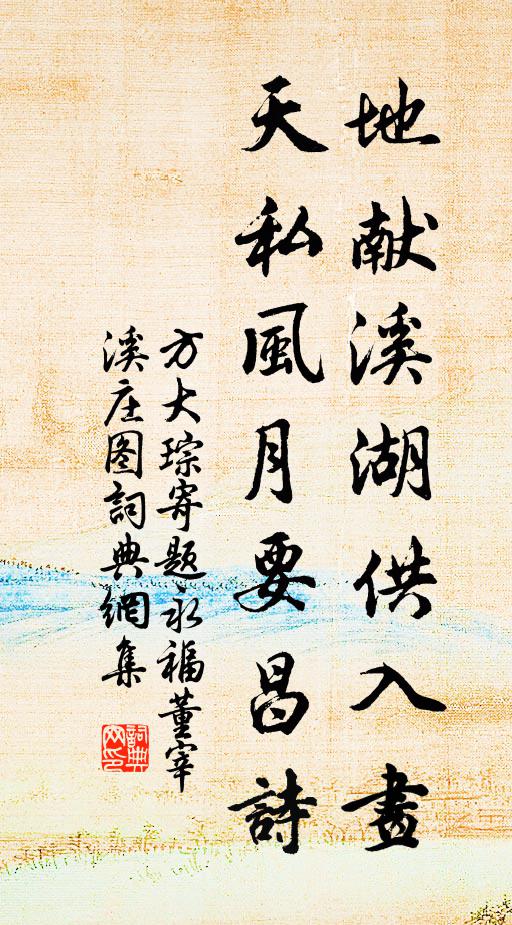 地献溪湖供入畫
天私風月要昌詩
方大琮寄题永福董宰
溪庄图詞典網集
詞典网印